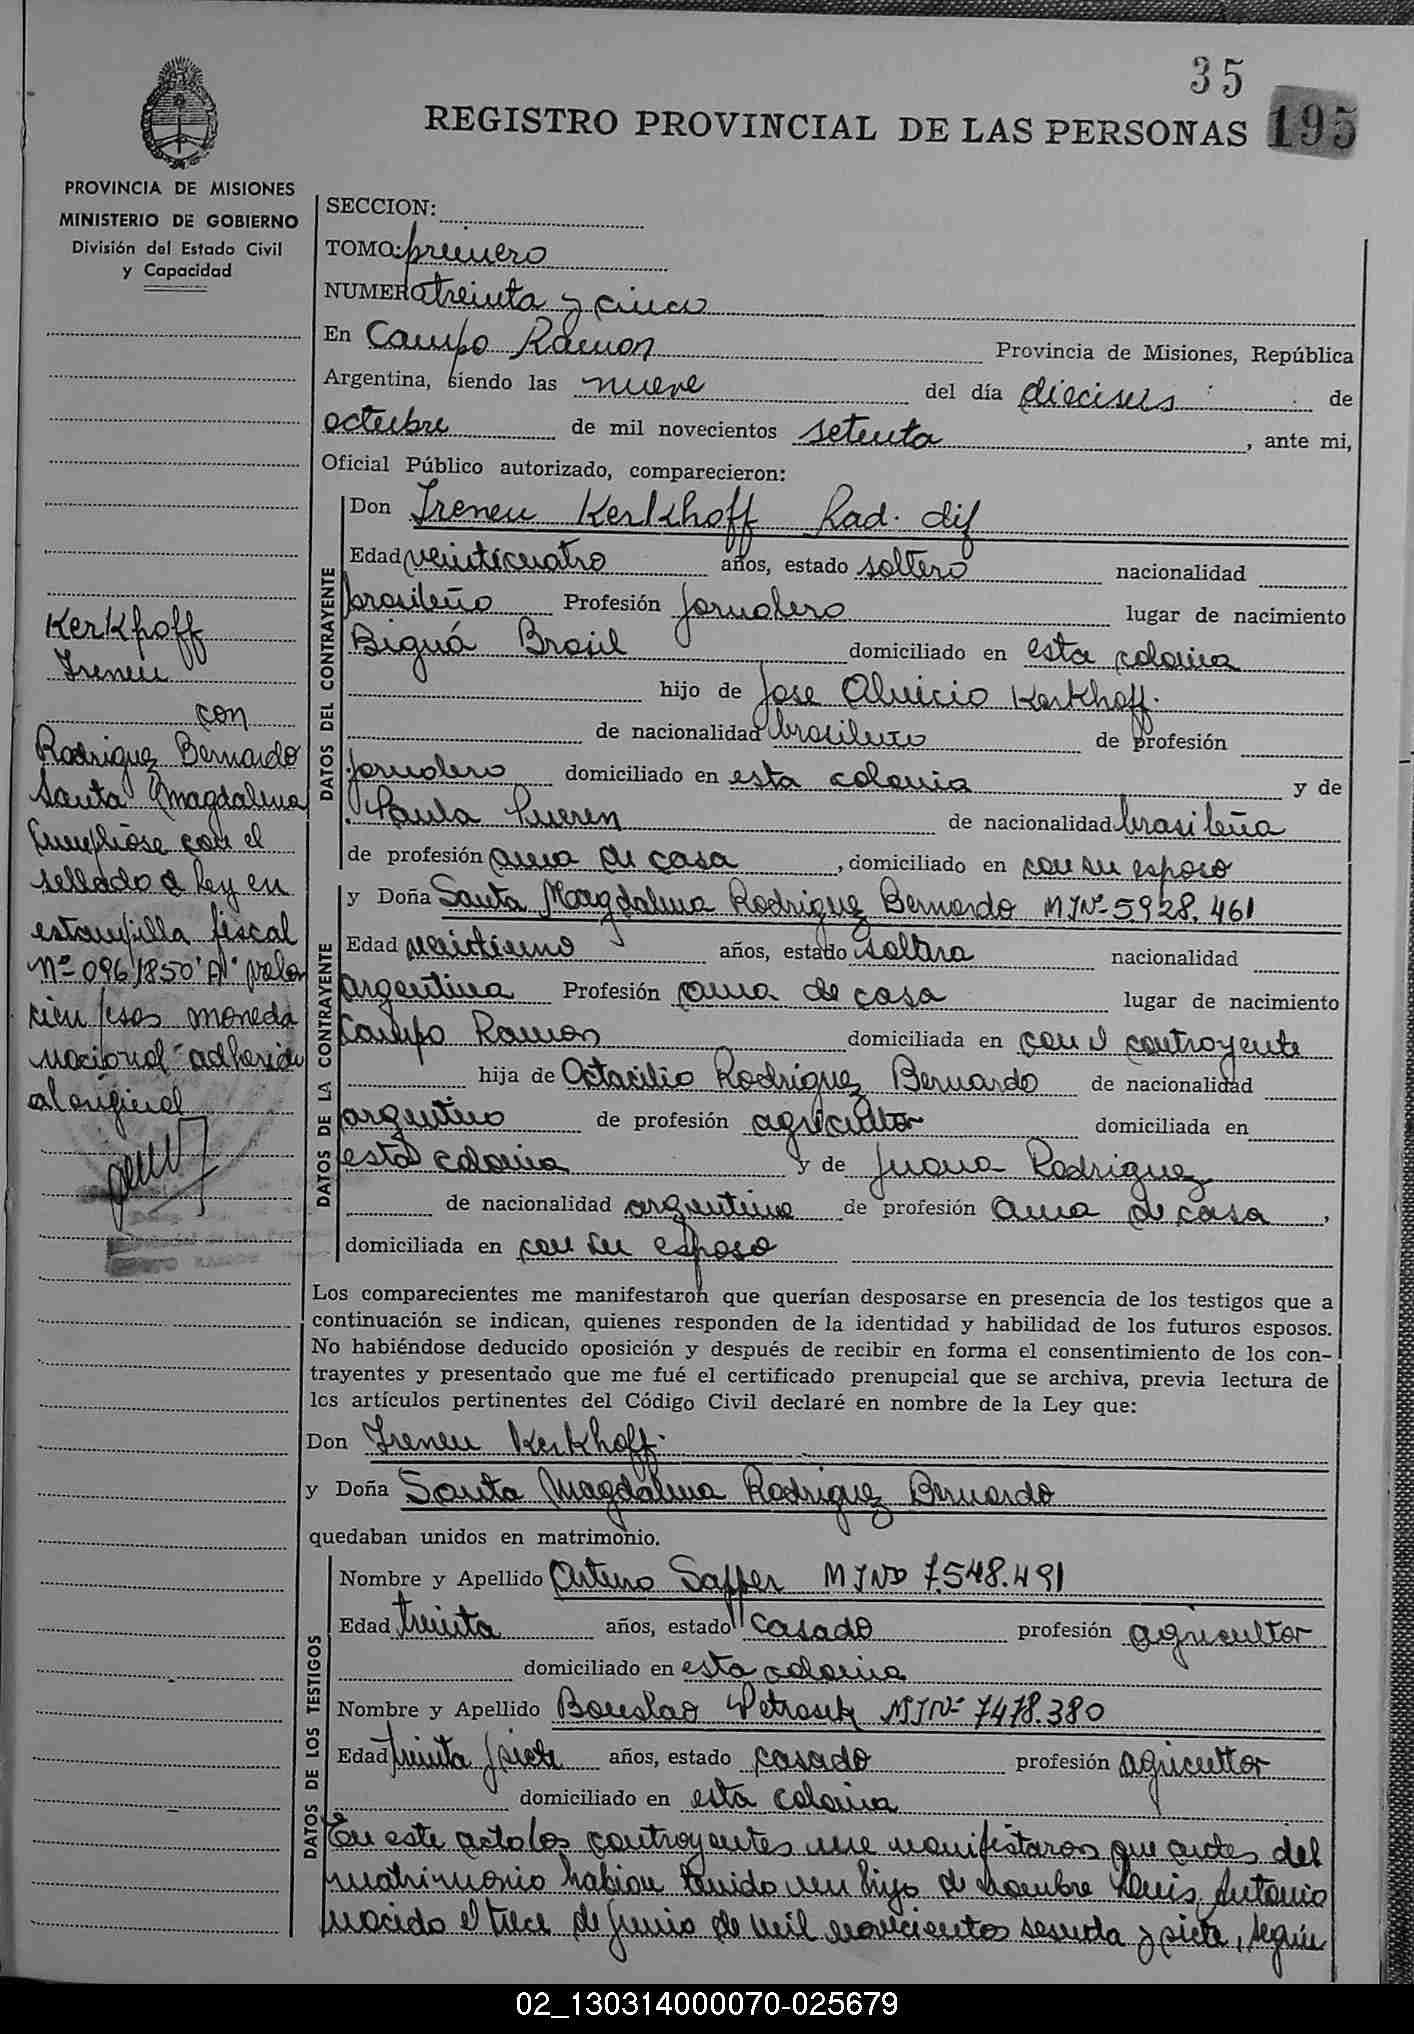 35
REGISTRO PROVINCIAL DE LAS PERSONAS 195
PROVINCIA DE MISIONES
MINISTERIO DE GOBIERNO
División del Estado Civil
y Capacidad
SECCION:
TOMO: primero
NUMERO treinta y cinco
En Campo Ramon Provincia de Misiones, República
Argentina, siendo las nueve del día dieciseis de
octubre de mil novecientos setenta, ante mi,
Oficial Público autorizado, comparecieron:
DATOS DEL CONTRAYENTE
Don Ireneu Kerkhoff Rad. dif
Edad veinticuatro años, estado soltero nacionalidad
brasileño Profesión Jornalero lugar de nacimiento
Biguá Brasil domiciliado en esta colonia
hijo de Jose Aluicio Kerkhoff.
de nacionalidad brasilero de profesión
Jornalero domiciliado en esta colonia y de
Paula de nacionalidad brasileña
de profesión ama de casa, domiciliado en con su esposo
DATOS DE LA CONTRAYENTE
y Doña Santa Magdalena Rodriguez Bernardo MINº 5.928.461
Edad veintiuno años, estado soltera nacionalidad
argentina Profesión ama de casa lugar de nacimiento
Campo Ramon domiciliada en con el contrayente
hija de Octacilio Rodriguez Bernardo de nacionalidad
argentino de profesión agricultor domiciliada en
esta colonia y de Juana Rodriguez
de nacionalidad argentina de profesión ama de casa,
domiciliada en con su esposo
Los comparecientes me manifestaron que querían desposarse en presencia de los testigos que a
continuación se indican, quienes responden de la identidad y habilidad de los futuros esposos.
No habiéndose deducido oposición y después de recibir en forma el consentimiento de los con-
trayentes y presentado que me fué el certificado prenupcial que se archiva, previa lectura de
los artículos pertinentes del Código Civil declaré en nombre de la Ley que:
Don Ireneu Kerkhoff.
y Doña Santa Magdalena Rodriguez Bernardo
quedaban unidos en matrimonio.
DATOS DE LOS TESTIGOS
Nombre y Apellido Arturo Saffer MINº 7.548.491
Edad treinta años, estado casado profesión agricultor
domiciliado en esta colonia
Nombre y Apellido Boleslao MINº 7478.380
Edad treinta y siete años, estado casado profesión agricultor
domiciliado en esta colonia
En este acto los contrayentes me manifestaron que antes del
matrimonio habian tenido un hijo de nombre Luis Antonio
nacido el trece de junio de mil novecientos sesenta y siete, según
Kerkhoff
Ireneu
con
Rodriguez Bernardo
Santa Magdalena
Cumpliose con el
sellado de ley en
estampilla fiscal
Nº 0961850 "A" valor
cien pesos moneda
nacional adherida
al original
02_130314000070-025679